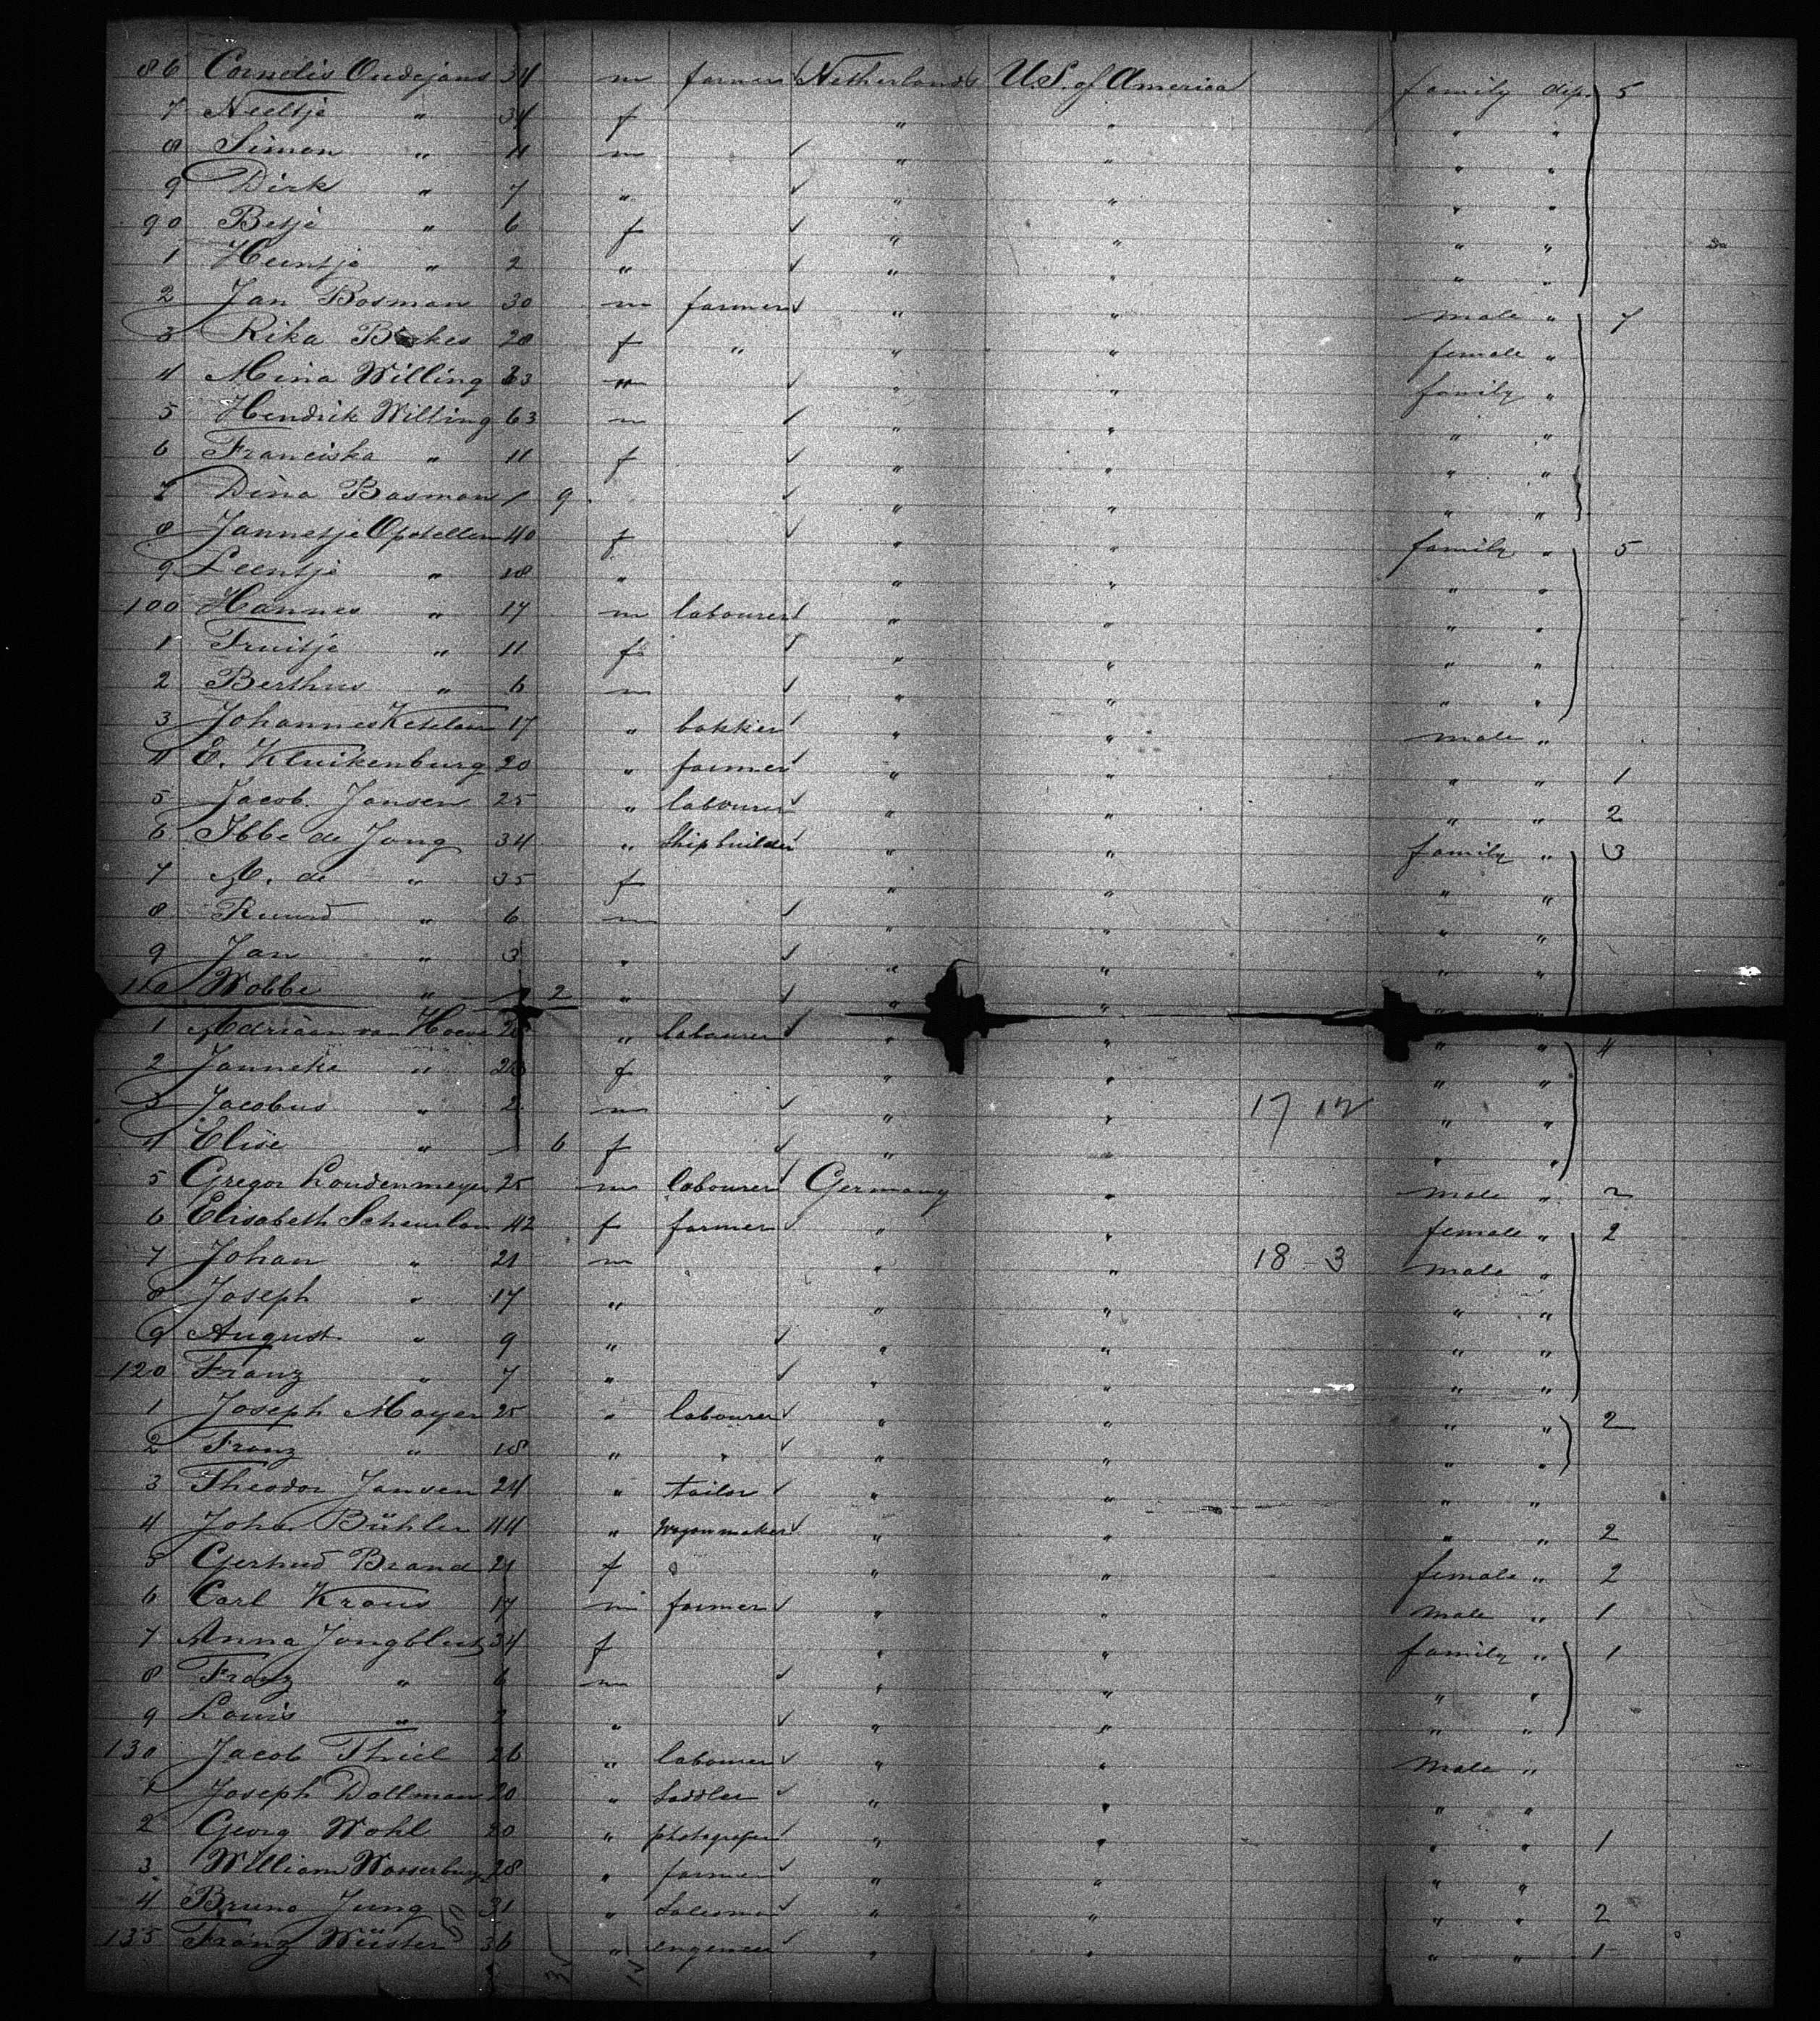 86 Cornelis Oudejans 34 m farmer Netherlands U.S. of America family dep. 5
7 Neeltje " 34 f " " " "
8 Simon " 11 m " " " "
9 Dirk " 7 " " " " "
90 Betje " 6 f " " " "
1 " 2 " " " " "
2 Jan Bosman 30 m farmer " " male " 7
3 Rika 28 f " " " female "
4 Mina Willing " " " family "
5 Hendrik Willing 63 m " " " "
6 Franciska " 11 f " " " "
7 Dina Bosman 9 " " " "
8 Jannetje 40 f " " family " 5
9 Leentje " 18 " " " " "
100 Hannes " 17 m labourer " " " "
1 " 11 f " " " "
2 Berthus " 6 m " " " "
3 Johannes 17 " bakker " " male "
4 E. Kluikenburg 20 " farmer " " " " 1
5 Jacob Jansen 25 " labourer " " " " 2
6 Ibbe de Jong 34 " Shipbuilder " " family " 3
7 M. de " 35 f " " " "
8 Ruurd " 6 m " " " "
9 Jan " 3 " " " " "
110 Wobbe " 2 " " " " "
1 Adriaan van Hoeve " labourer " " " " 4
2 Janneke " f " " " "
3 Jacobus " 2 m " " 17 12 " "
4 Elise " 6 f " " " "
5 Gregor Loudenmeyer 25 m labourer Germany " male " 2
6 Elisabeth 42 f farmer " " female " 2
7 Johan " 21 m " " 18 3 male "
8 Joseph " 17 " " " " "
9 August " 9 " " " " "
120 Franz " 7 " " " " "
1 Joseph Mayer 25 " labourer " " " " 2
2 Franz " 18 " " " " " "
3 Theodor Jansen 24 " tailor " " " "
4 Johan Bühler 44 " wagonmaker " " " " 2
5 Gertrud Brand 21 f " " female " 2
6 Carl Kraus 17 m farmer " " male " 1
7 Anna Jongblut 34 f " " family " 1
8 Franz " 6 m " " " "
9 Louis " " " " " "
130 Jacob Thiel 26 " labourer " " male "
1 Joseph Dollman 20 " saddler " " " "
2 Georg Wohl 20 " photografer " " " " 1
3 William Wasserburg 28 " farmer " " " "
4 Bruno Jung 31 " Salesman " " " " 2
135 Franz Wüster 36 " engeneer " " " " 1